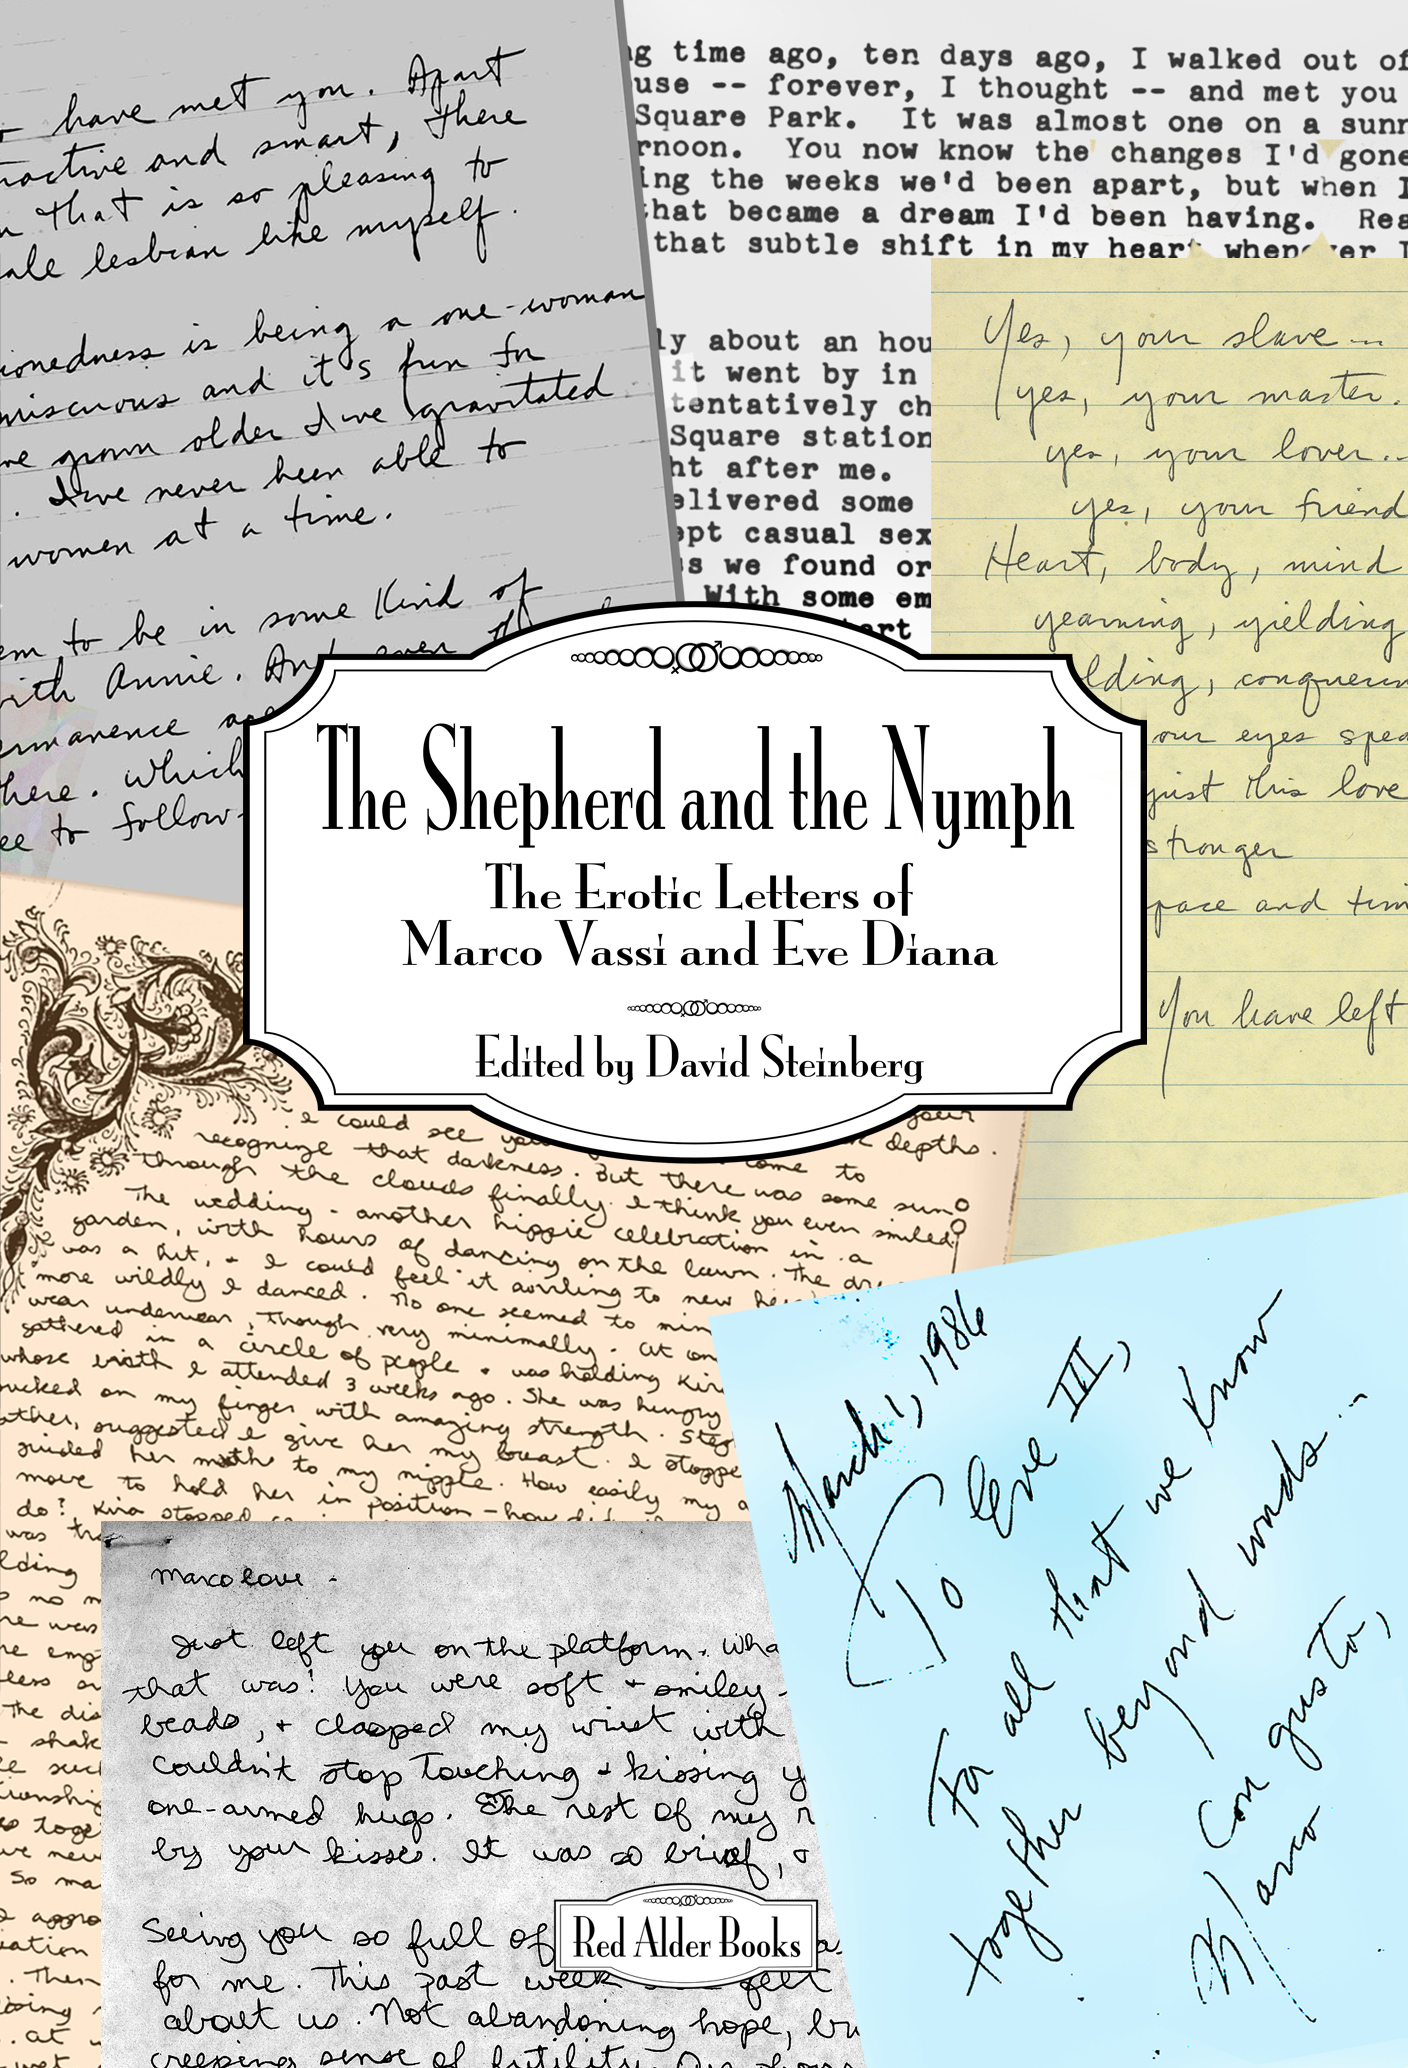 have met you. Apart
ractive and smart, there
that is so pleasing to
ale lesbian like myself.
ionedness is being a one-woman
miscuous and it's fun for
ve grown older I've gravitated
. I've never been able to
women at a time.
em to be in some kind of
with Annie. And even
ermanence
here. Which
ee to follow-
ng time ago, ten days ago, I walked out of
use -- forever, I thought -- and met you
Square Park. It was almost one on a sunn
rnoon. You now know the changes I'd gone
ing the weeks we'd been apart, but when I
that became a dream I'd been having. Rea
that subtle shift in my heart whenever I
ly about an hou
it went by in
tentatively ch
Square station
ht after me.
elivered some
ept casual sex
s we found or
With some em
tart
Yes, your slave...
yes, your master.
yes, your lover..
yes, your friend
Heart, body, mind
yearning, yielding
lding, conquerin
our eyes spea
just this love
stronger
pace and tim
You have left
The Shepherd and the Nymph
The Erotic Letters of
Marco Vassi and Eve Diana
Edited by David Steinberg
I could see you your
recognize that darkness. But there come to depths.
through the clouds finally. I think you even smiled.
The wedding - another hippie celebration in a
garden, with hours of dancing on the lawn. The dre
was a hit, & I could feel it swirling to new hei
more wildly I danced. No one seemed to min
wear underwear, though very minimally. At on
gathered in a circle of people & was holding Kir
whose birth I attended 3 weeks ago. She was hungry
sucked on my finger with amazing strength. Step
ather, suggested I give her my breast. I stoppe
guided her mouth to my nipple. How easily my a
move to hold her in position - how did
do? Kira stopped
was tr
lding
no m
re was
he emp
less or
The dis
shak
suc
tionship
toge
ve new
So ma
appro
iation
. Then
. at
Marco love -
Just left you on the platform. Wha
that was! You were soft & smiley -
beads, & clasped my wrist with
couldn't stop touching & kissing y
one-armed hugs. The rest of my r
by your kisses. It was so brief, &
Seeing you so full of as
for me. This past week felt
about us. Not abandoning hope, bu
creeping sense of futility. Our phone
March 1, 1986
To Eve III,
For all that we know
together beyond words...
Con gusto,
Marco
Red Alder Books